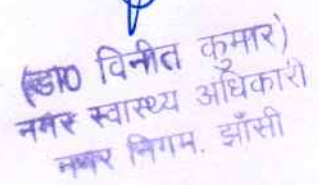 (डा0 विनीत कुमार)
नगर स्वास्थ्य अधिकारी
नगर निगम. झाँसी